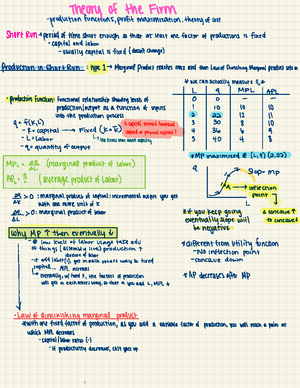 Theory of the Firm
- production functions, profit maximization, theory of cost
Short Run → period of time short enough, so that at least one factor of productions is fixed
- capital and labor
- usually capital is fixed (doesn't change)
Production in Short Run : Type 1 → Marginal Product reaches max and then Law of Diminishing Marginal product sets in
* Production Function: functional relationship showing levels of production/output as a function of inputs into the production process
q = f(K, L)
- K = capital → Fixed (K = K̄)
- L = labor
- q = quantity of output
* If we can actually measure q *
L q MPL APL
0 0 - -
1 10 10 10
2 22 12 11
3 30 8 10
4 36 6 9
5 40 4 8
* MP maximized @ (L, q) (2, 22)
MPL = (marginal product of labor)
APL = (average product of labor)
> 0 : marginal product of capital : incremental output you get with one more unit of K
> 0 : marginal product of labor
Slope = MP
inflection point
* if you keep going eventually slope will be negative
concave ↑
concave ↓
Why MP ↑ then eventually ↓
- @ low levels of labor usage take adv of things (assembly line) production ↑
- if add labor (L), get in each others way to fixed capital... MPL decreases
* different from utility function
- No inflection point
- concave down
* AP decreases after MP
- Law of diminishing marginal product
* with one fixed factor of production, as you add a variable factor of production, you will reach a point at which MPL decreases
- capital/labor ratio (-)
- If productivity decreases, cost goes up